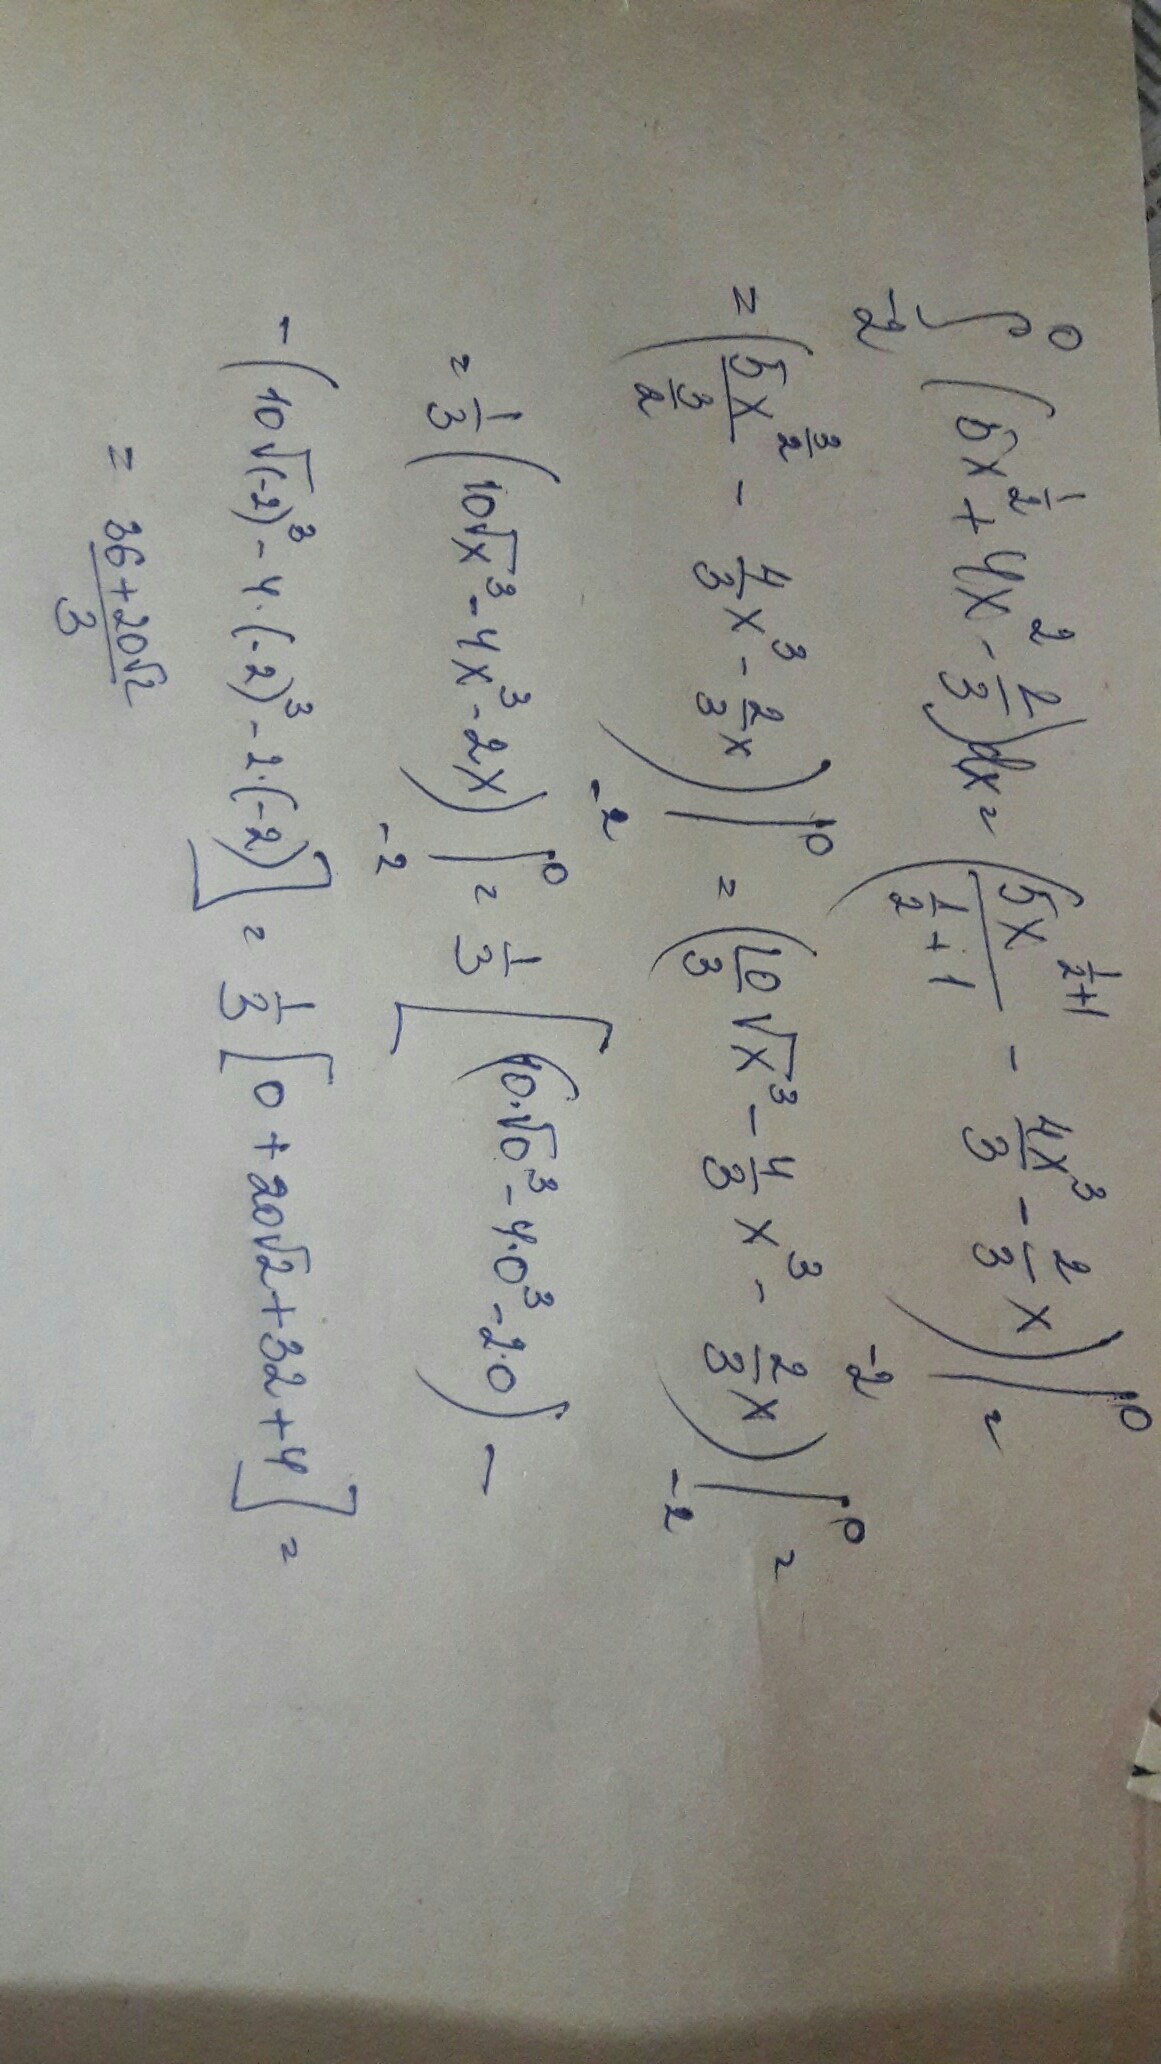 ∫_{-2}^{0} (5x^{1/2} + 4x^2 - 2/3)dx = (5x^{1/2+1}/(1/2+1) - 4x^3/3 - 2/3 x)|_{-2}^{0} =
= (5x^{3/2}/(3/2) - 4/3 x^3 - 2/3 x)|_{-2}^{0} = (10/3 √x^3 - 4/3 x^3 - 2/3 x)|_{-2}^{0} =
= 1/3 (10√x^3 - 4x^3 - 2x)|_{-2}^{0} = 1/3 [(10·√0^3 - 4·0^3 - 2·0) -
- (10√(-2)^3 - 4·(-2)^3 - 2·(-2)] = 1/3 [0 + 20√2 + 32 + 4] =
= (36 + 20√2)/3